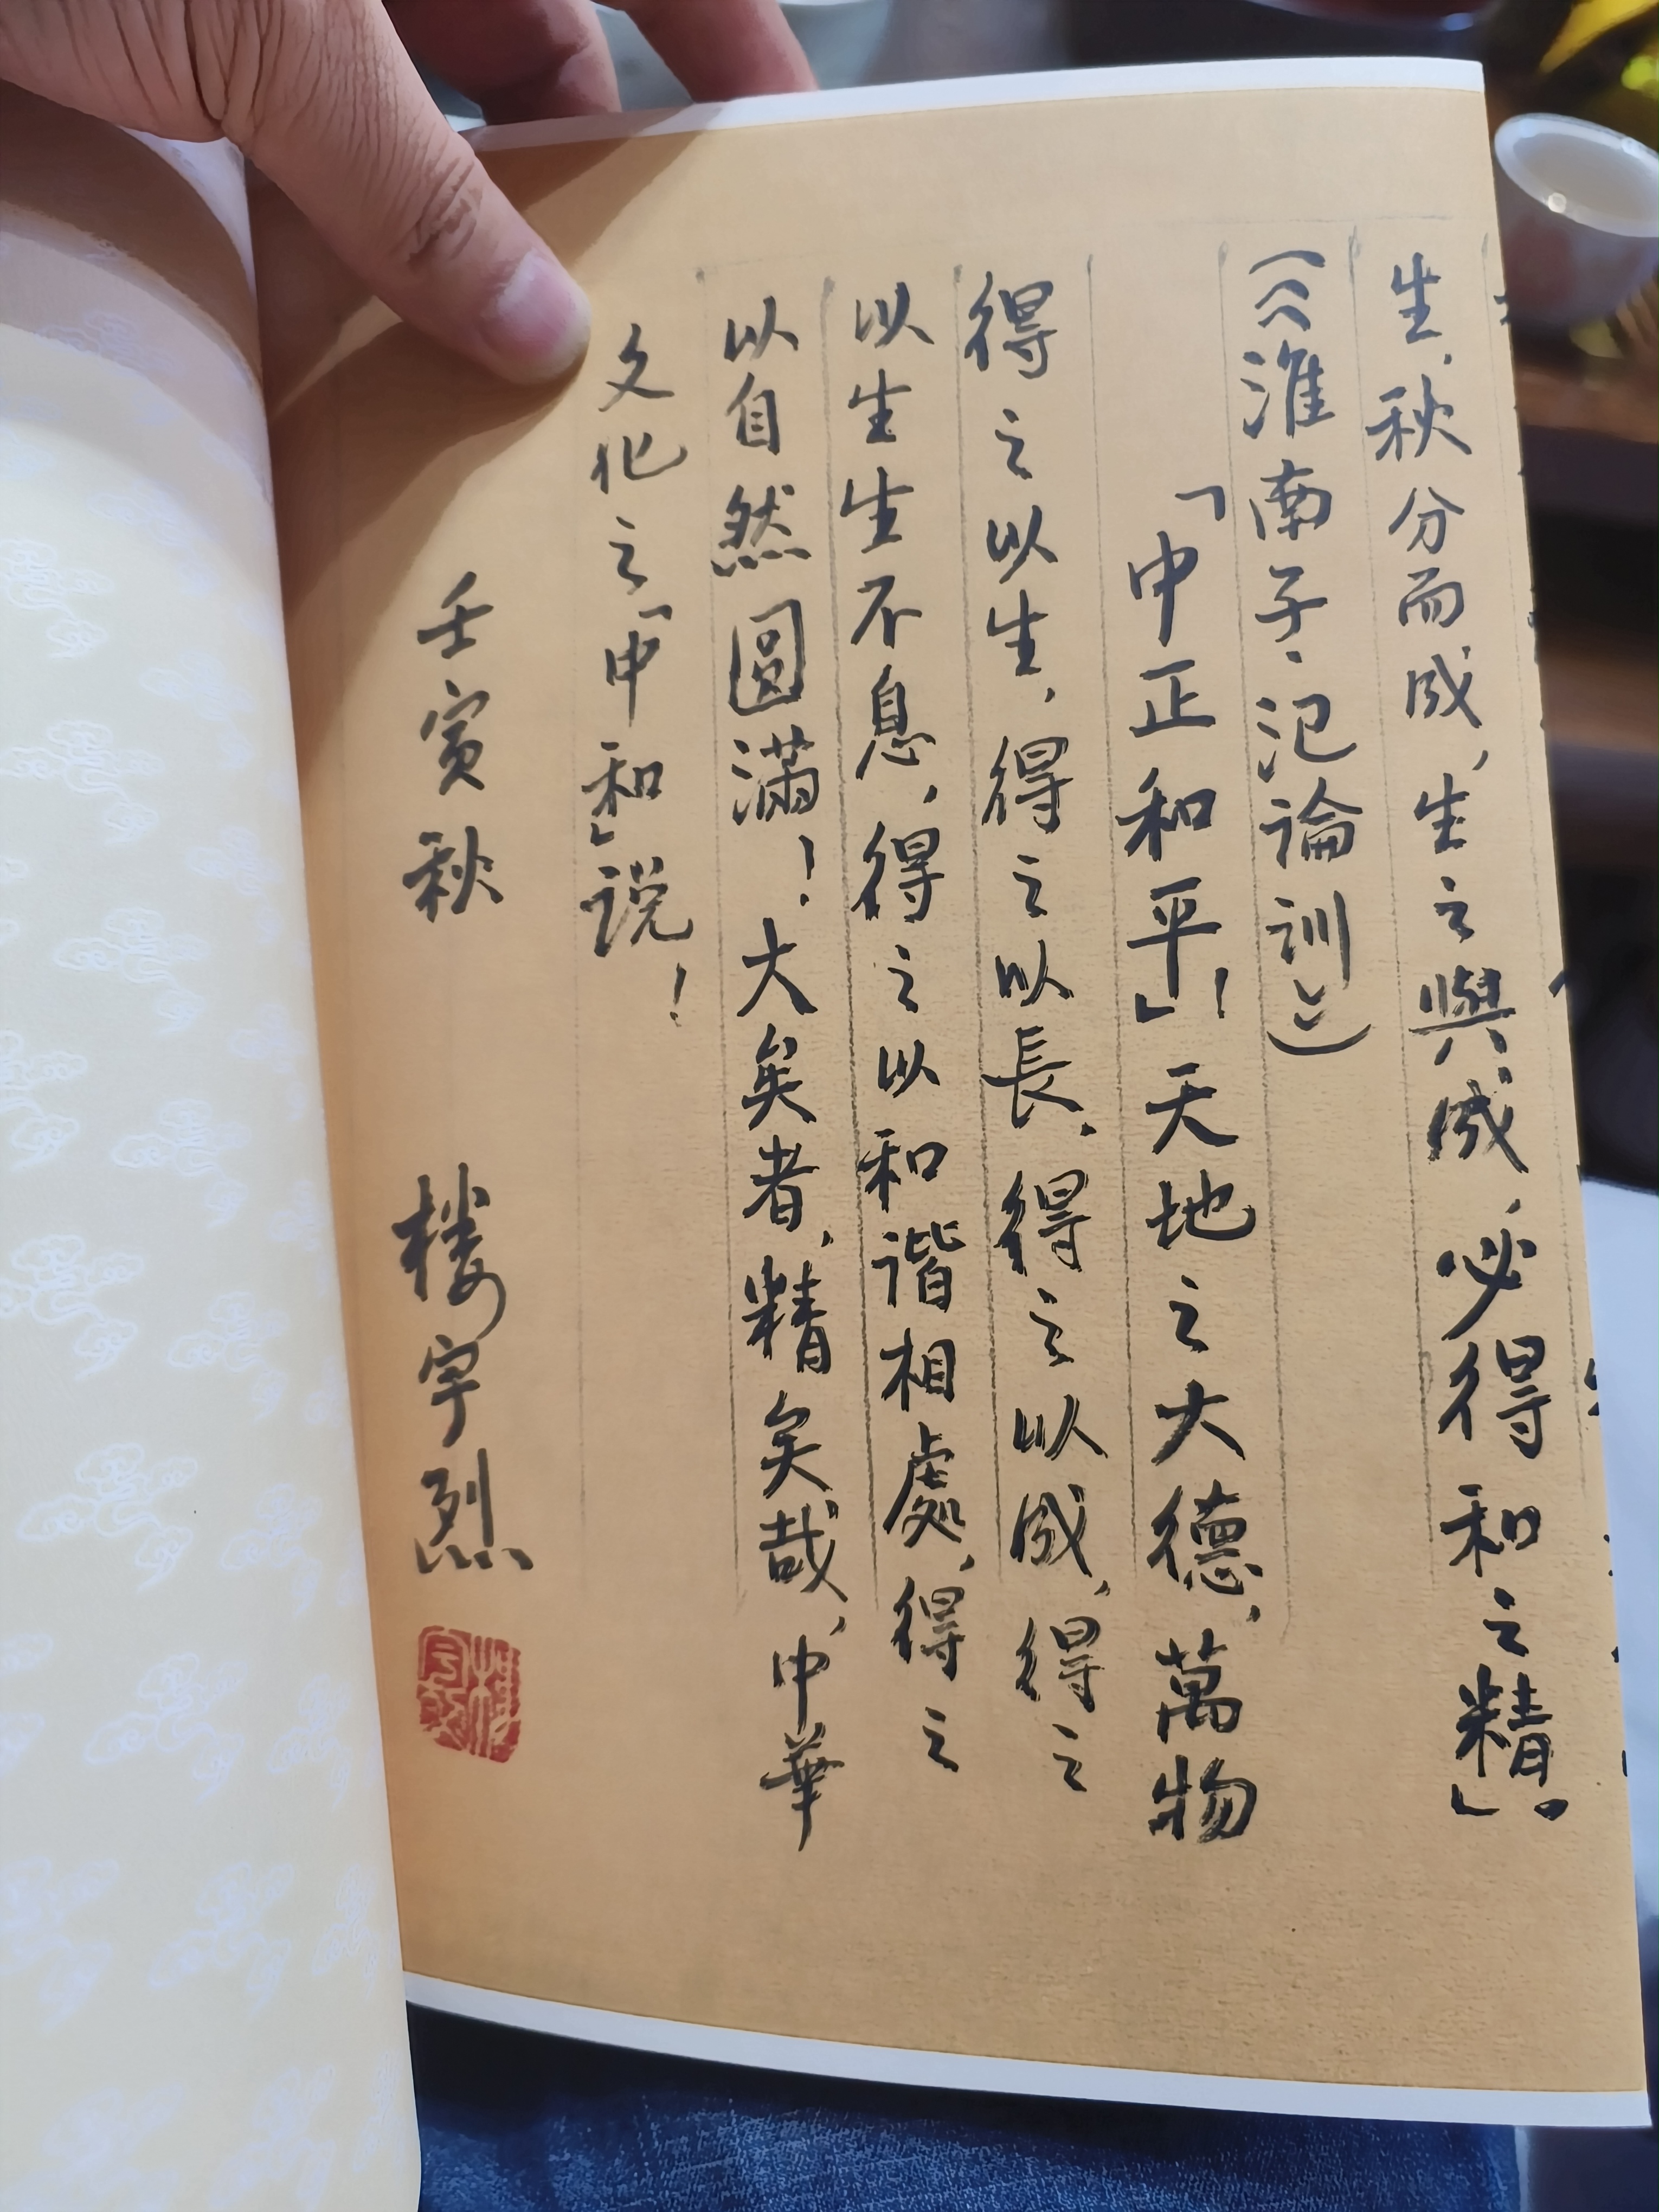 生，秋分而成，生之與成，必得和之精」。
（《淮南子·氾論訓》）
「中正和平」！天地之大德，萬物
得之以生，得之以長，得之以成，得之
以生生不息，得之以和谐相處，得之
以自然圓滿！大矣者，精矣哉，中華
文化之「中和」説！
壬寅秋 楼宇烈